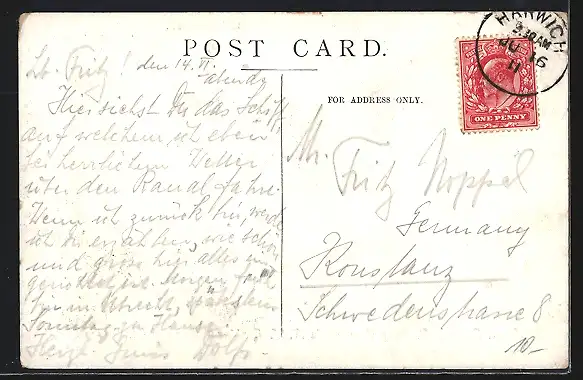 POST CARD.
HARWICH
9.30AM
JU 16
11
ONE PENNY
FOR ADDRESS ONLY.
Lb. Fritz! den 14. VI.
abends
Hier siehst Du das Schiff
auf welchem ich eben
bei herrlichem Wetter
über den Kanal fahre.
Wenn ich zurück bin werde
ich Dir erzählen, wie schön
und gross hier alles
ist. Morgen früh
bin in Utrecht, spätestens
Sonntag zu Hause.
Herzl. Gruss Dölfi.
Mr.
Fritz Noppel
Germany
Konstanz
Schwedenstrasse 8
10-